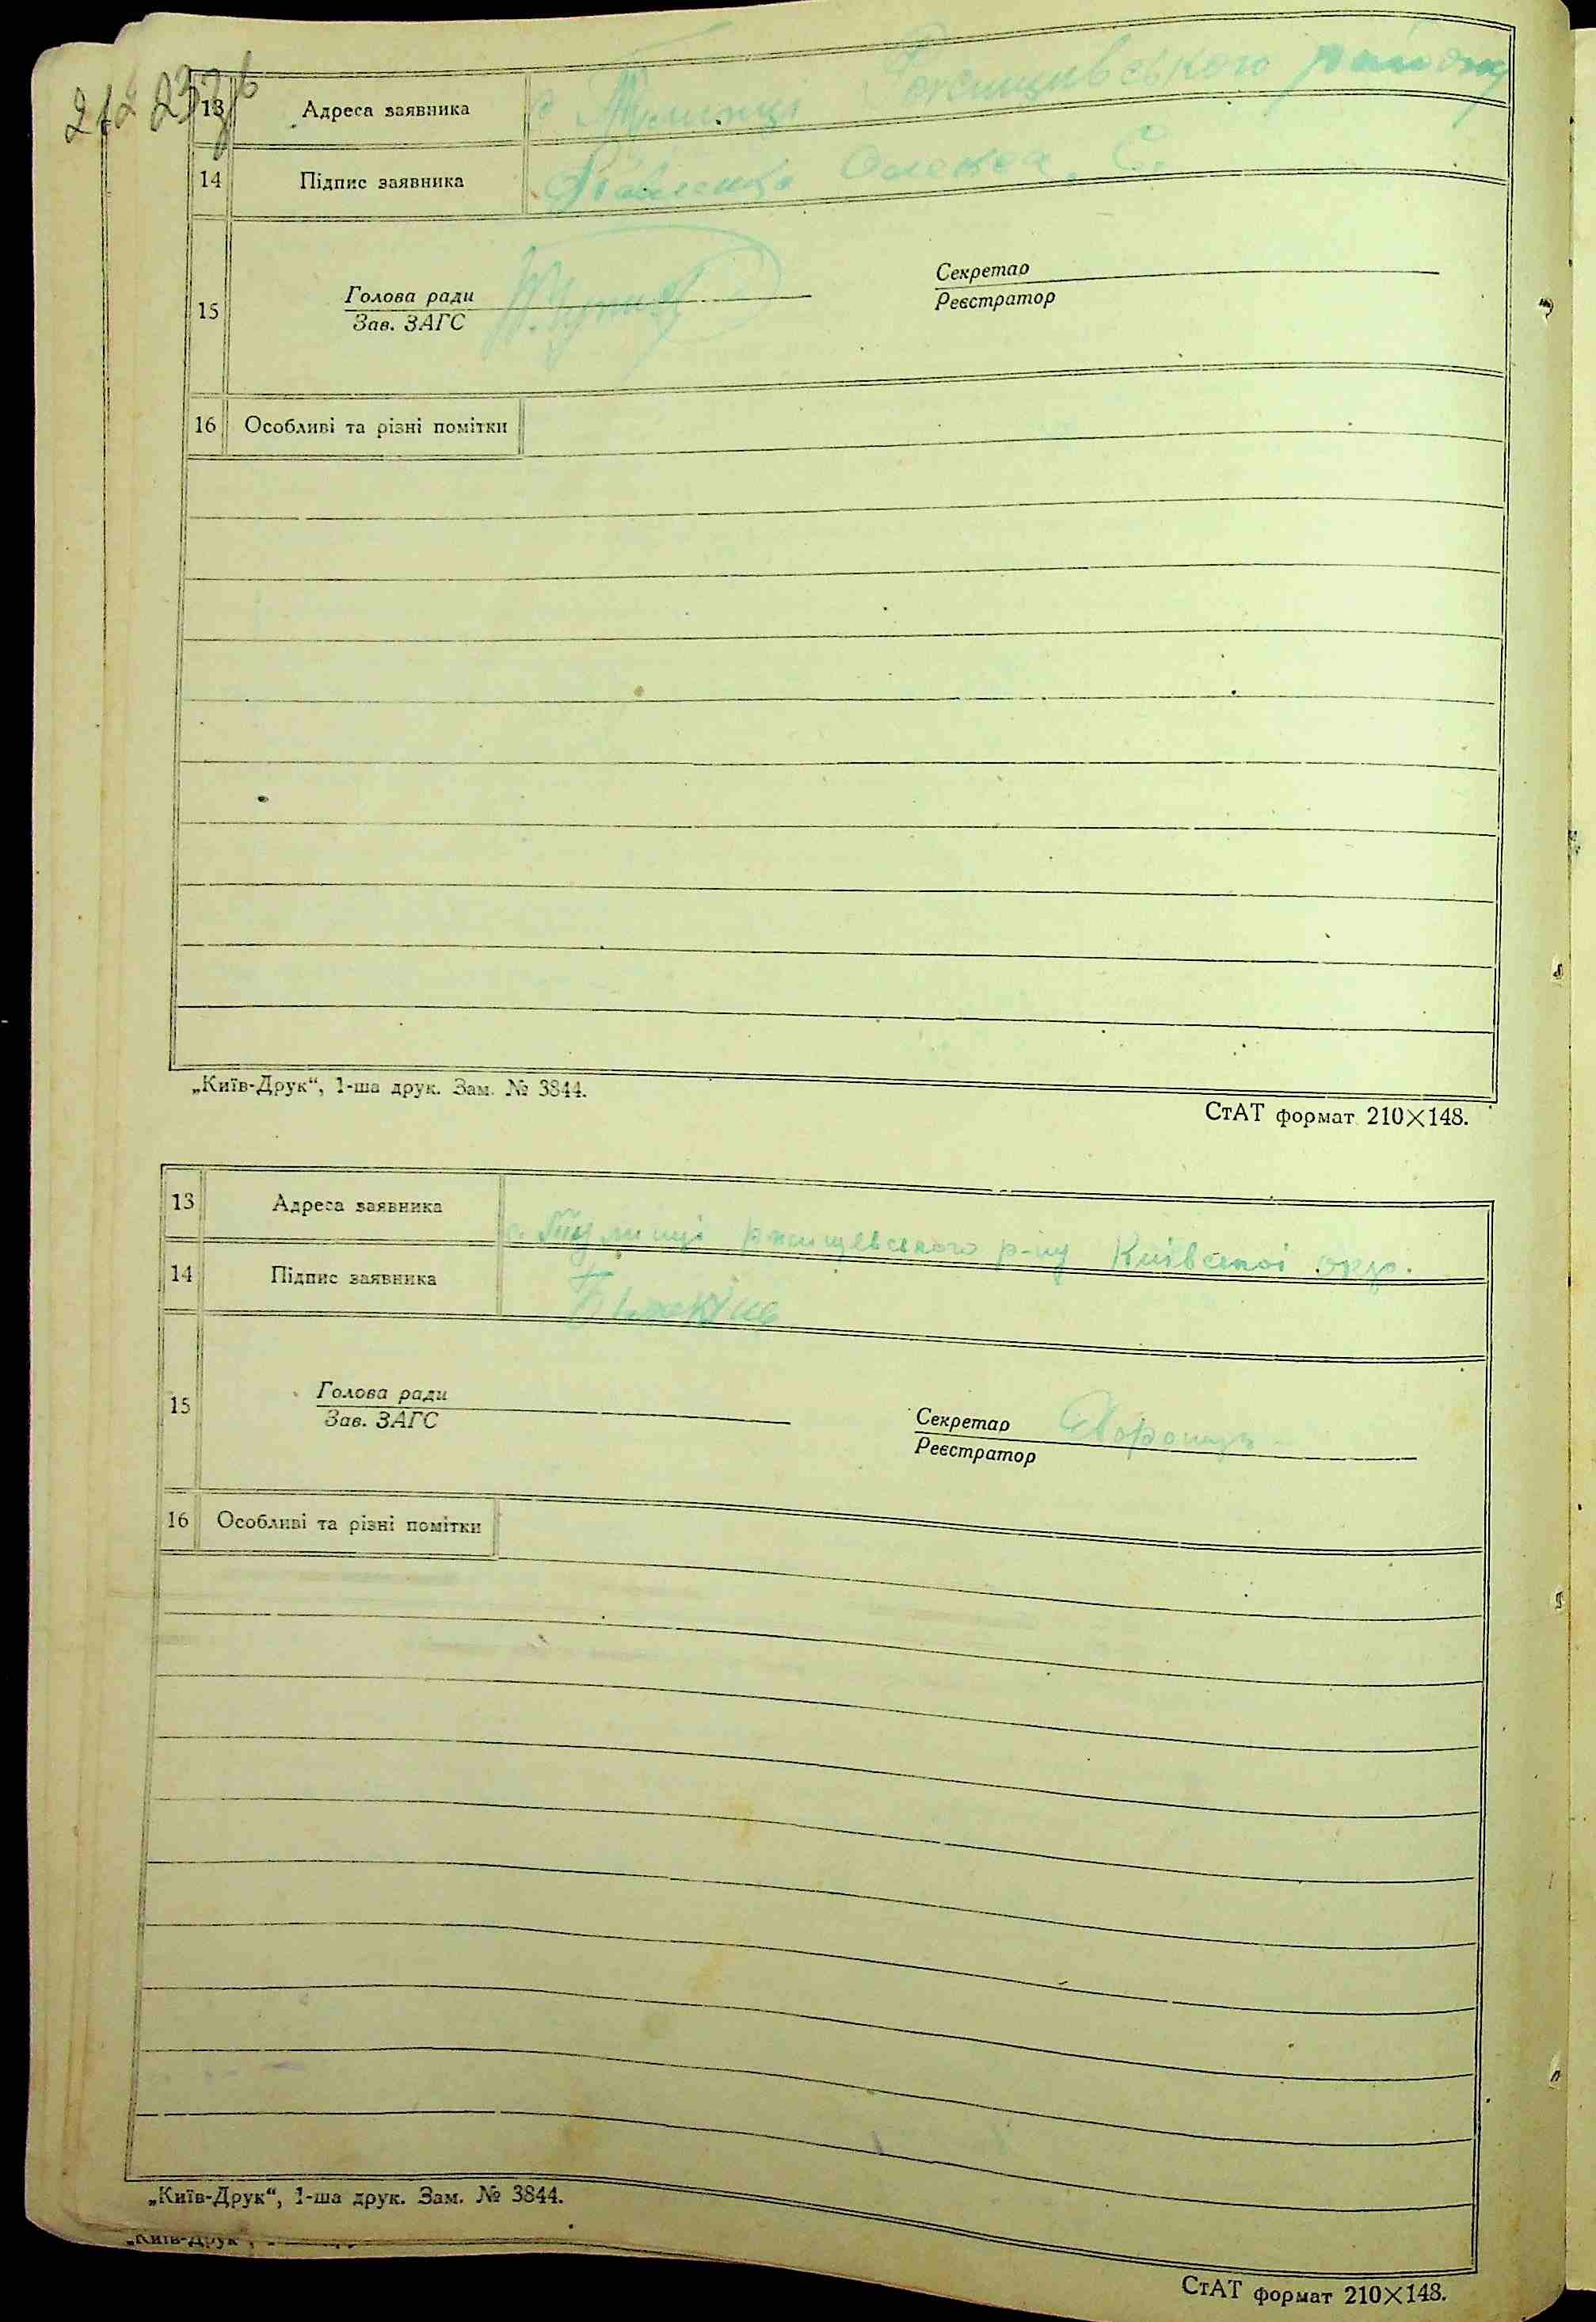 13 Адреса заявника с Тулинці Ржищивського району
14 Підпис заявника Олекса. С.
15 Голова ради
Зав. ЗАГС
Секретар
Реєстратор
16 Особливі та різні помітки
„Київ-Друк“, 1-ша друк. Зам. № 3844.
СтАТ формат 210×148.
13 Адреса заявника с. Тулинці ржищевського р-ну Київської окр.
14 Підпис заявника
15 Голова ради
Зав. ЗАГС
Секретар
Реєстратор
16 Особливі та різні помітки
„Київ-Друк“, 1-ша друк. Зам. № 3844.
„Київ-Друк“,
СтАТ формат 210×148.